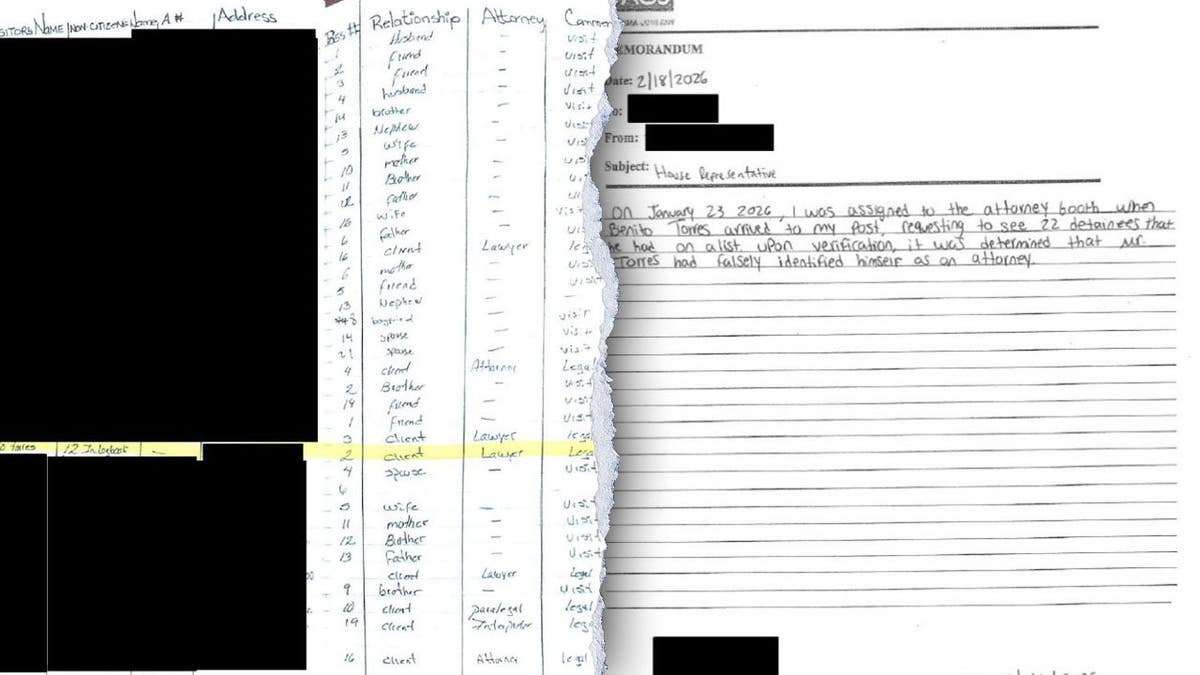 Address
Bgs # Relationship Attorney
Husband – visit
1 friend – visit
2 friend – visit
3 husband – visit
4 brother – visit
14 Nephew – visit
13 wife –
5 mother –
10 Brother –
11 father –
12 wife –
16 father –
6 client Lawyer
16 mother –
6 friend –
5 Nephew –
13 boyfriend – visit
14 spouse – visit
21 spouse – visit
4 client Attorney Legal
2 Brother – visit
14 friend – visit
1 friend – visit
3 client Lawyer legal
12 In logbook – 2 client Lawyer Legal
4 spouse – visit
6
5 wife – visit
11 mother – visit
12 Brother – visit
13 father – visit
client Lawyer legal
9 brother – visit
10 client paralegal legal
19 client legal
16 client legal
EMORANDUM
Date: 2/18/2026
From:
Subject: House Representative
On January 23 2026, I was assigned to the attorney booth when
Benito Torres arrived to my post, requesting to see 22 detainees that
he had on a list. upon verification, it was determined that Mr.
Torres had falsely identified himself as an attorney.